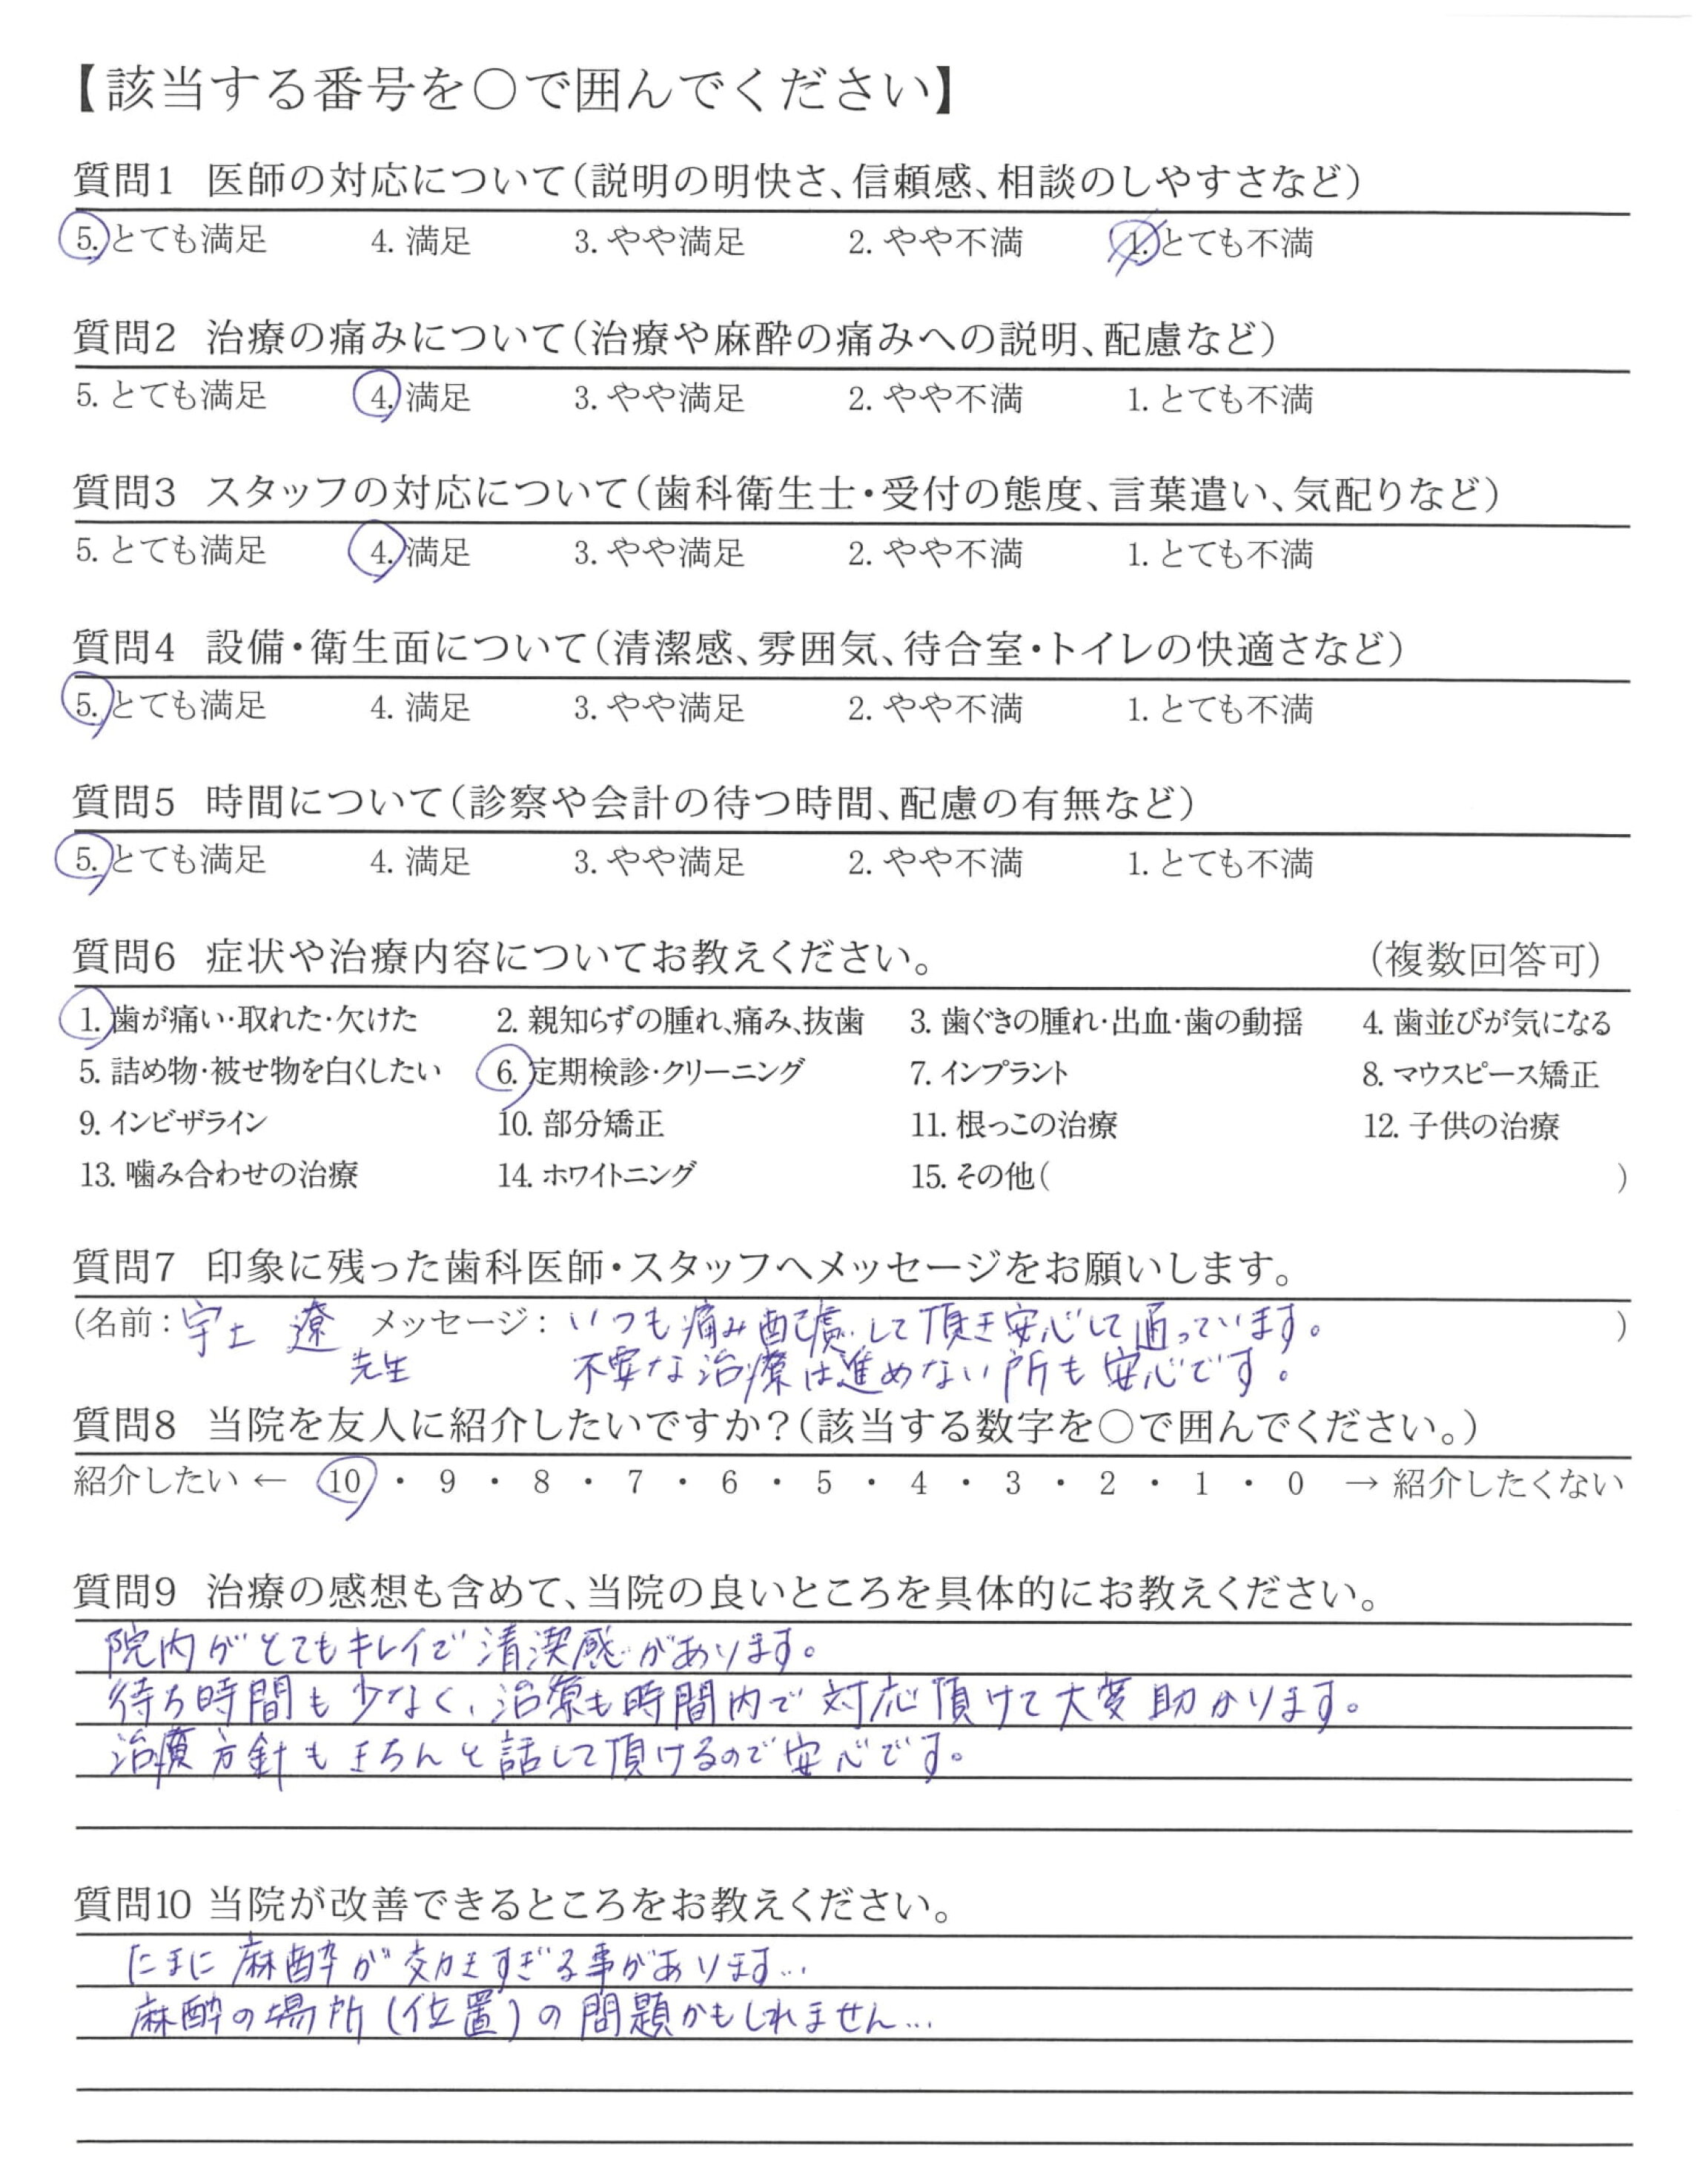 【該当する番号を○で囲んでください】
質問1 医師の対応について(説明の明快さ、信頼感、相談のしやすさなど)
5. とても満足 4. 満足 3. やや満足 2. やや不満 1. とても不満
質問2 治療の痛みについて(治療や麻酔の痛みへの説明、配慮など)
5. とても満足 4. 満足 3. やや満足 2. やや不満 1. とても不満
質問3 スタッフの対応について(歯科衛生士・受付の態度、言葉遣い、気配りなど)
5. とても満足 4. 満足 3. やや満足 2. やや不満 1. とても不満
質問4 設備・衛生面について(清潔感、雰囲気、待合室・トイレの快適さなど)
5. とても満足 4. 満足 3. やや満足 2. やや不満 1. とても不満
質問5 時間について(診察や会計の待つ時間、配慮の有無など)
5. とても満足 4. 満足 3. やや満足 2. やや不満 1. とても不満
質問6 症状や治療内容についてお教えください。 (複数回答可)
1. 歯が痛い・取れた・欠けた 2. 親知らずの腫れ、痛み、抜歯 3. 歯ぐきの腫れ・出血・歯の動揺 4. 歯並びが気になる
5. 詰め物・被せ物を白くしたい 6. 定期検診・クリーニング 7. インプラント 8. マウスピース矯正
9. インビザライン 10. 部分矯正 11. 根っこの治療 12. 子供の治療
13. 噛み合わせの治療 14. ホワイトニング 15. その他( )
質問7 印象に残った歯科医師・スタッフへメッセージをお願いします。
(名前: 宇土 遼 メッセージ: いつも痛み配慮して頂き安心して通っています。 )
先生 不要な治療は進めない所も安心です。
質問8 当院を友人に紹介したいですか?(該当する数字を○で囲んでください。)
紹介したい ← 10 ・ 9 ・ 8 ・ 7 ・ 6 ・ 5 ・ 4 ・ 3 ・ 2 ・ 1 ・ 0 → 紹介したくない
質問9 治療の感想も含めて、当院の良いところを具体的にお教えください。
院内がとてもキレイで清潔感があります。
待ち時間も少なく、治療も時間内で対応頂けて大変助かります。
治療方針もきちんと話して頂けるので安心です。
質問10 当院が改善できるところをお教えください。
たまに麻酔が効きすぎる事があります…
麻酔の場所(位置)の問題かもしれません…